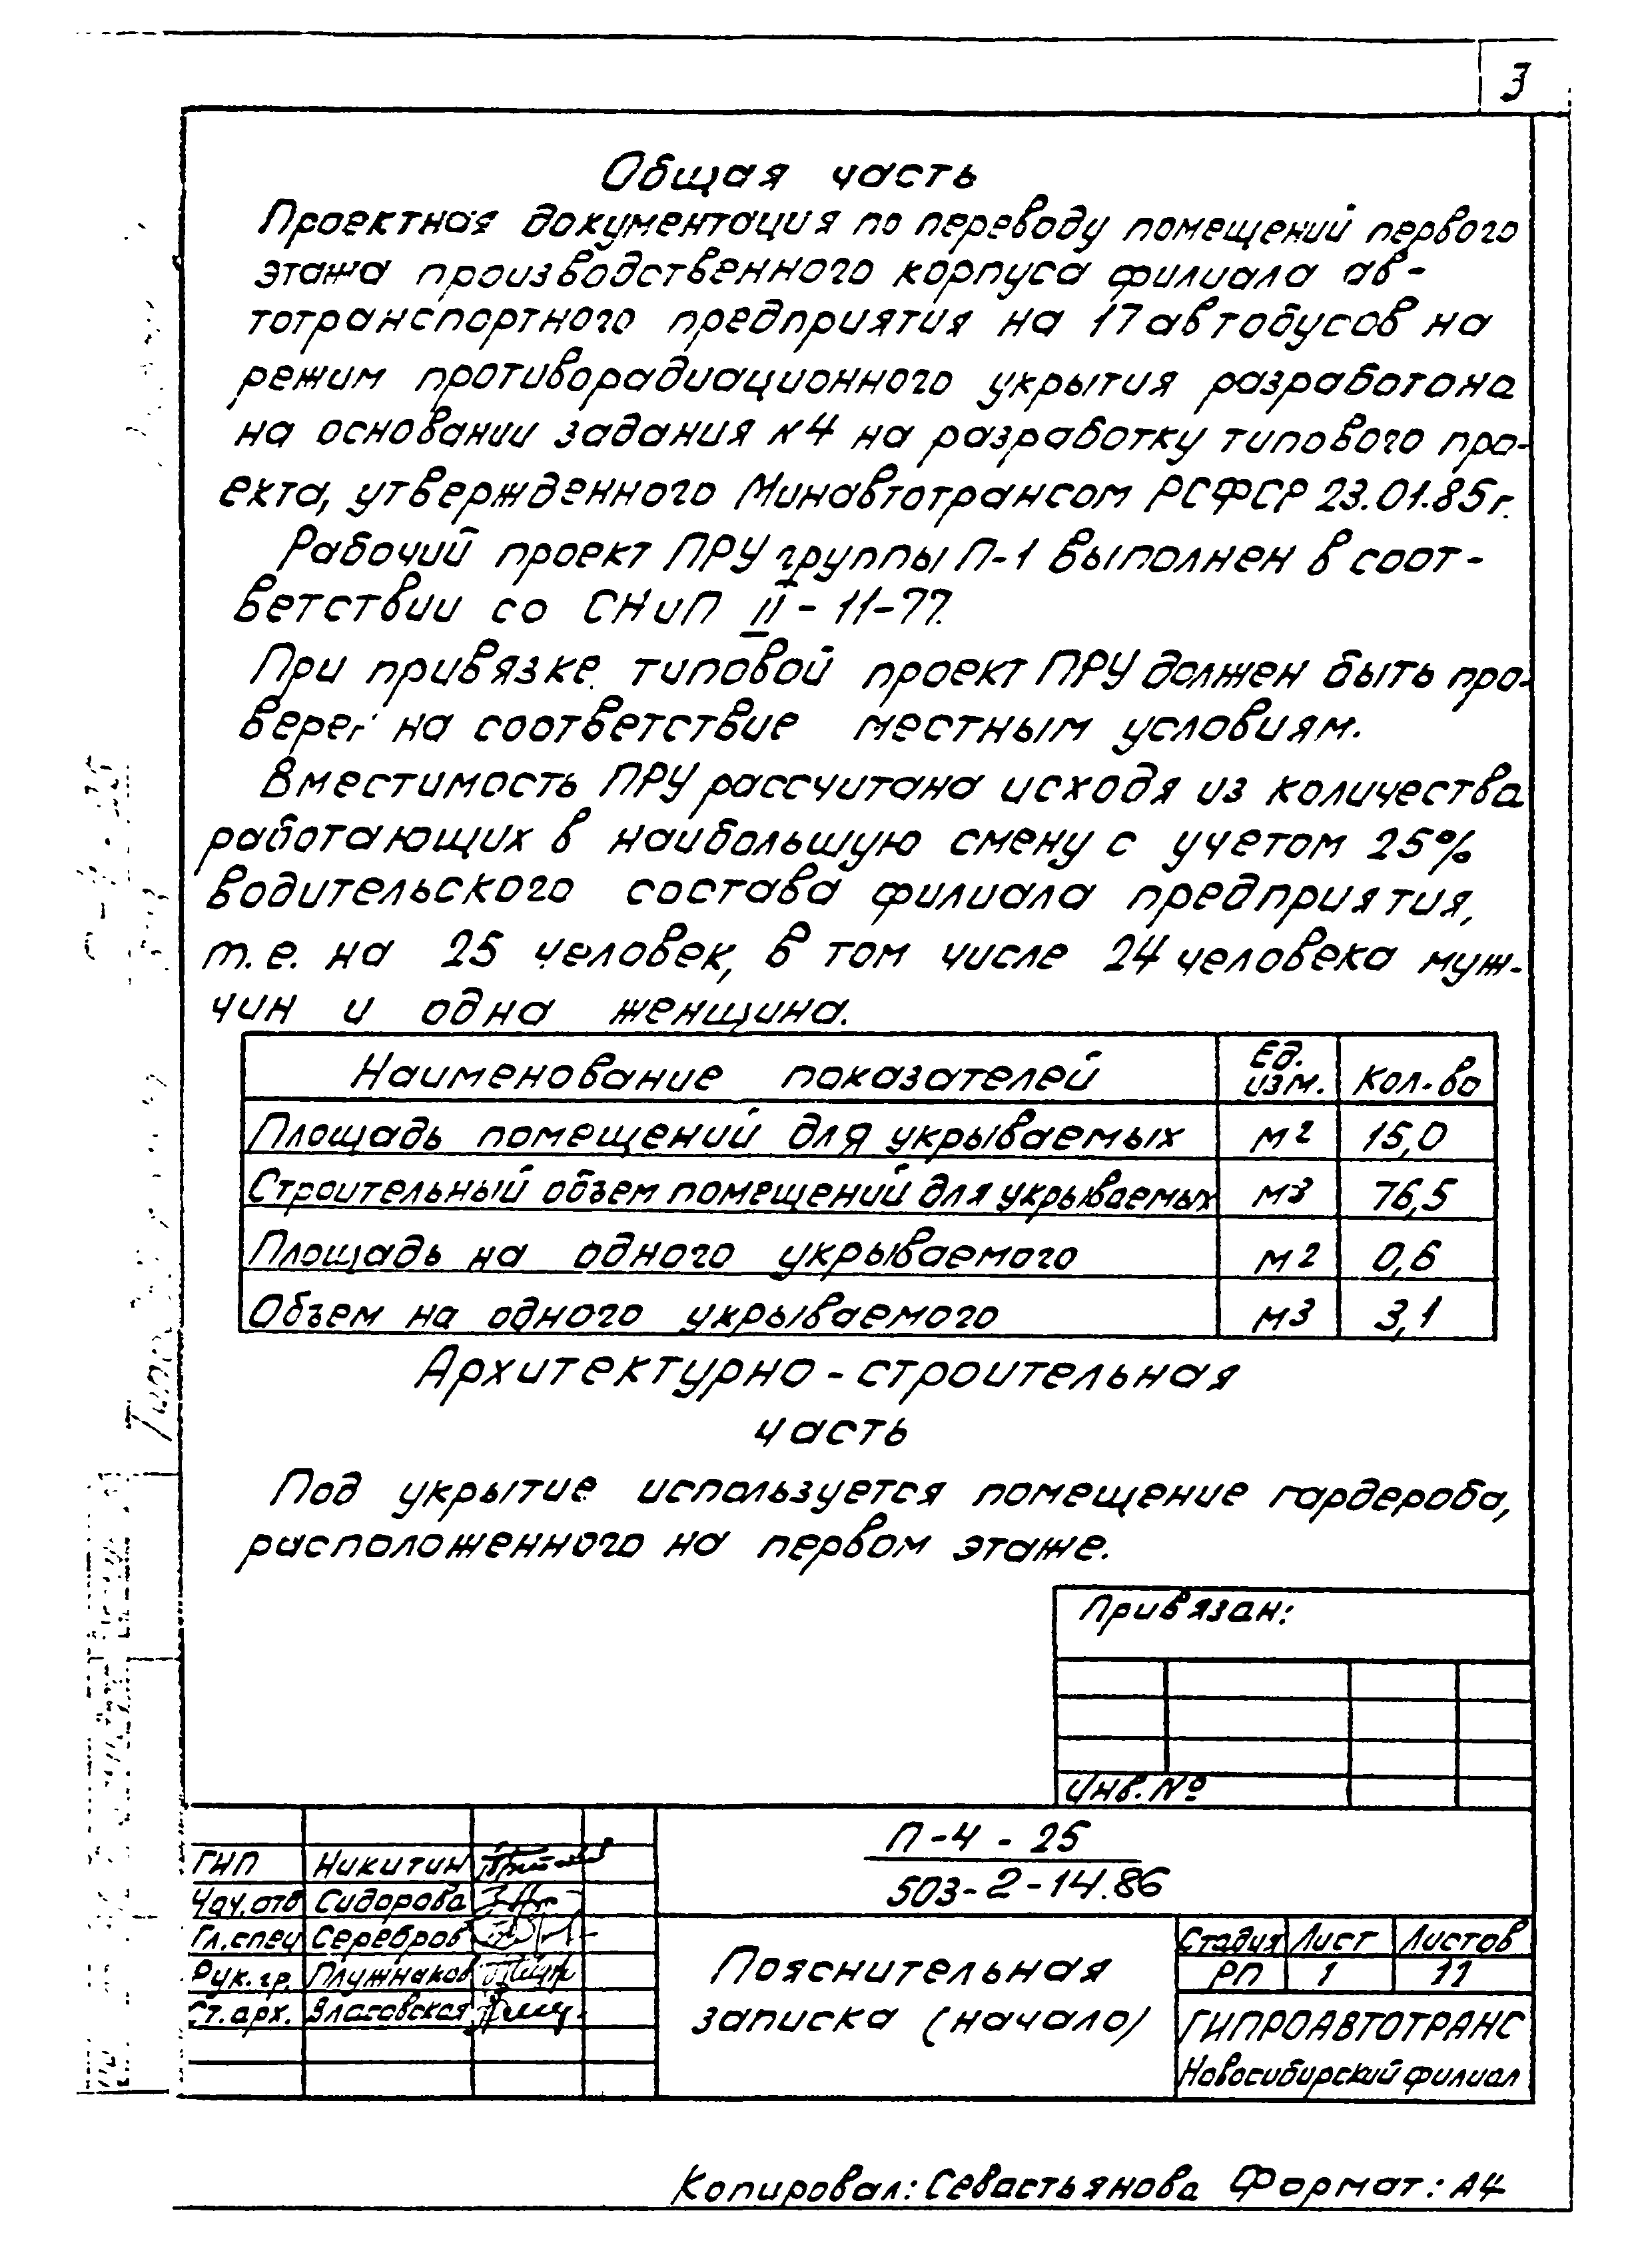 3
Общая часть
Проектная документация по переводу помещений первого
этажа производственного корпуса филиала ав-
тотранспортного предприятия на 17 автобусов на
режим противорадиационного укрытия разработана
на основании задания №4 на разработку типового про-
екта, утвержденного Минавтотрансом РСФСР 23.01.85г.
Рабочий проект ПРУ группы П-1 выполнен в соот-
ветствии со СНиП II-11-77.
При привязке типовой проект ПРУ должен быть про-
верен на соответствие местным условиям.
Вместимость ПРУ рассчитана исходя из количества
работающих в наибольшую смену с учетом 25%
водительского состава филиала предприятия,
т.е. на 25 человек, в том числе 24 человека муж-
чин и одна женщина.
Наименование показателей Ед. изм. Кол-во
Площадь помещений для укрываемых м2 15,0
Строительный объем помещений для укрываемых м3 76,5
Площадь на одного укрываемого м2 0,6
Объем на одного укрываемого м3 3,1
Архитектурно-строительная
часть
Под укрытие используется помещение гардероба,
расположенного на первом этаже.
Привязан:
Инв. №
П-4-25
503-2-14.86
ГИП Никитин
Нач.отд Сидорова
Гл.спец Серебров
Рук.гр. Плужнаков
Ст.арх. Власовская
Пояснительная
записка (начало)
Стадия Лист Листов
РП 1 11
ГИПРОАВТОТРАНС
Новосибирский филиал
Копировал: Севастьянова Формат: А4